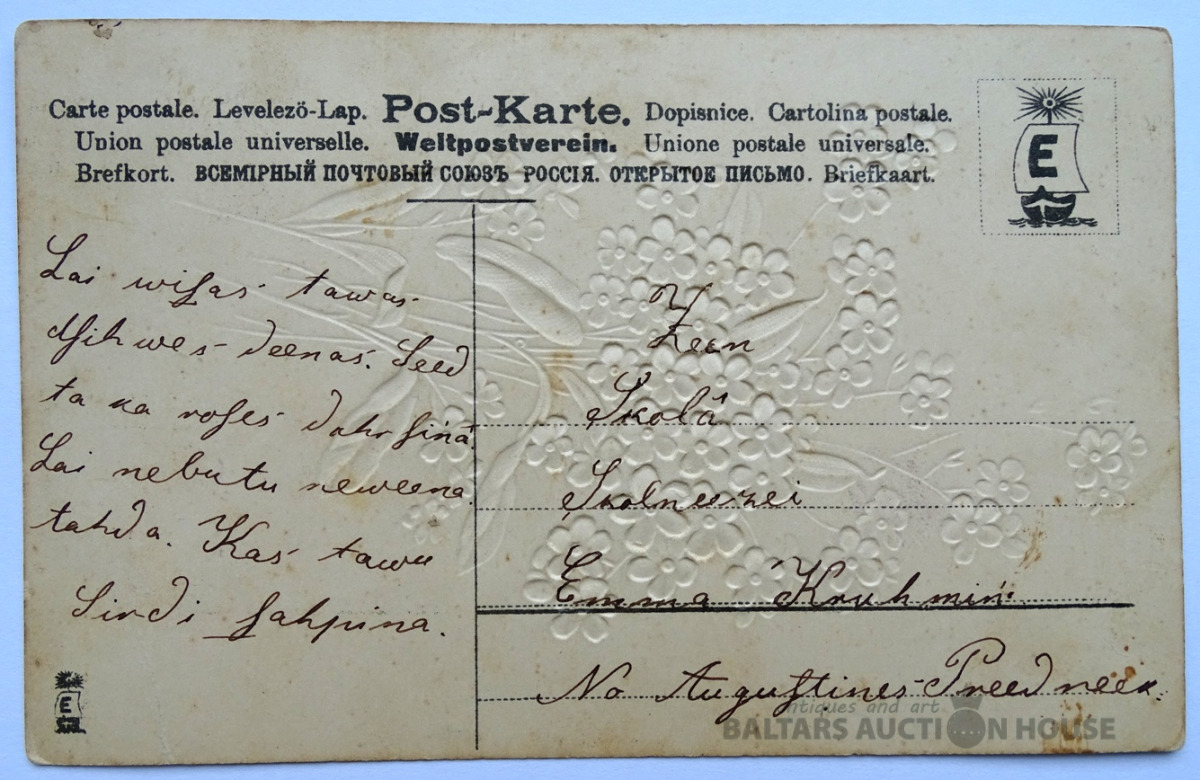 Carte postale. Levelező-Lap. Post-Karte. Dopisnice. Cartolina postale.
Union postale universelle. Weltpostverein. Unione postale universale.
Brefkort. ВСЕМІРНЫЙ ПОЧТОВЫЙ СОЮЗЪ РОССІЯ. ОТКРЫТОЕ ПИСЬМО. Briefkaart.
E
Lai wiſas tawas
dſihwes deenas. Seed
ta ka roſes dahrſinā
Lai nebutu neweena
tahda. Kas tawu
Sirdi ſahpina.
Skolâ
Skolneezei
Emma Kruhmiń:
No Auguſtines Preedneek
E
antiques and art
BALTARS AUCTION HOUSE